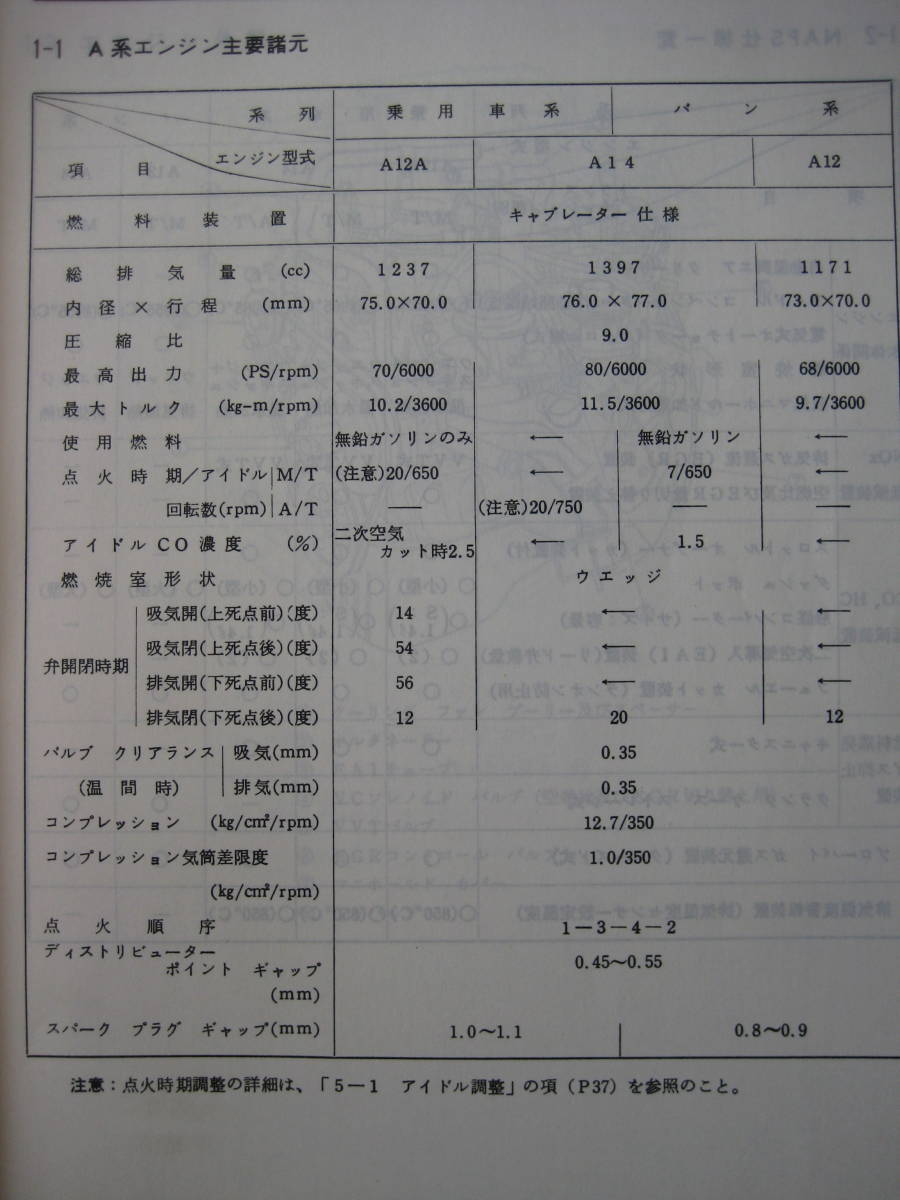 1-1 A系エンジン主要諸元
系列 乗用車系 バン系
項目 エンジン型式 A12A A14 A12
燃料装置 キャブレーター仕様
総排気量 (cc) 1237 1397 1171
内径×行程 (mm) 75.0×70.0 76.0×77.0 73.0×70.0
圧縮比 9.0
最高出力 (PS/rpm) 70/6000 80/6000 68/6000
最大トルク (kg-m/rpm) 10.2/3600 11.5/3600 9.7/3600
使用燃料 無鉛ガソリンのみ ← 無鉛ガソリン ←
点火時期/アイドル M/T (注意)20/650 ← 7/650 ←
回転数(rpm) A/T — (注意)20/750 — —
アイドルCO濃度 (%) 二次空気
カット時2.5 ← 1.5 ←
燃焼室形状 ウエッジ
弁開閉時期
吸気開(上死点前)(度) 14 ← ←
吸気閉(上死点後)(度) 54 ← ←
排気開(下死点前)(度) 56 ← ←
排気閉(下死点後)(度) 12 20 12
バルブ クリアランス 吸気(mm) 0.35
(温間時) 排気(mm) 0.35
コンプレッション (kg/cm²/rpm) 12.7/350
コンプレッション気筒差限度 1.0/350
(kg/cm²/rpm)
点火順序 1-3-4-2
ディストリビューター
ポイント ギャップ 0.45～0.55
(mm)
スパーク プラグ ギャップ(mm) 1.0～1.1 0.8～0.9
注意：点火時期調整の詳細は、「5-1 アイドル調整」の項(P37)を参照のこと。